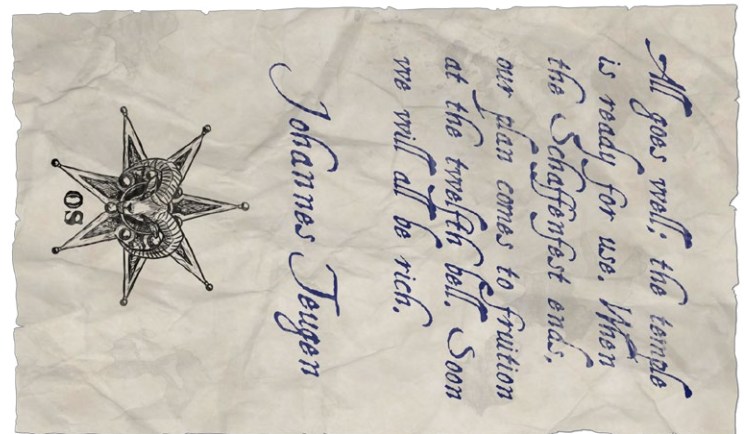 All goes well; the temple
is ready for use. When
the Schaffenfest ends,
our plan comes to fruition
at the twelfth bell. Soon
we will all be rich.
Johannes Teugen
OS